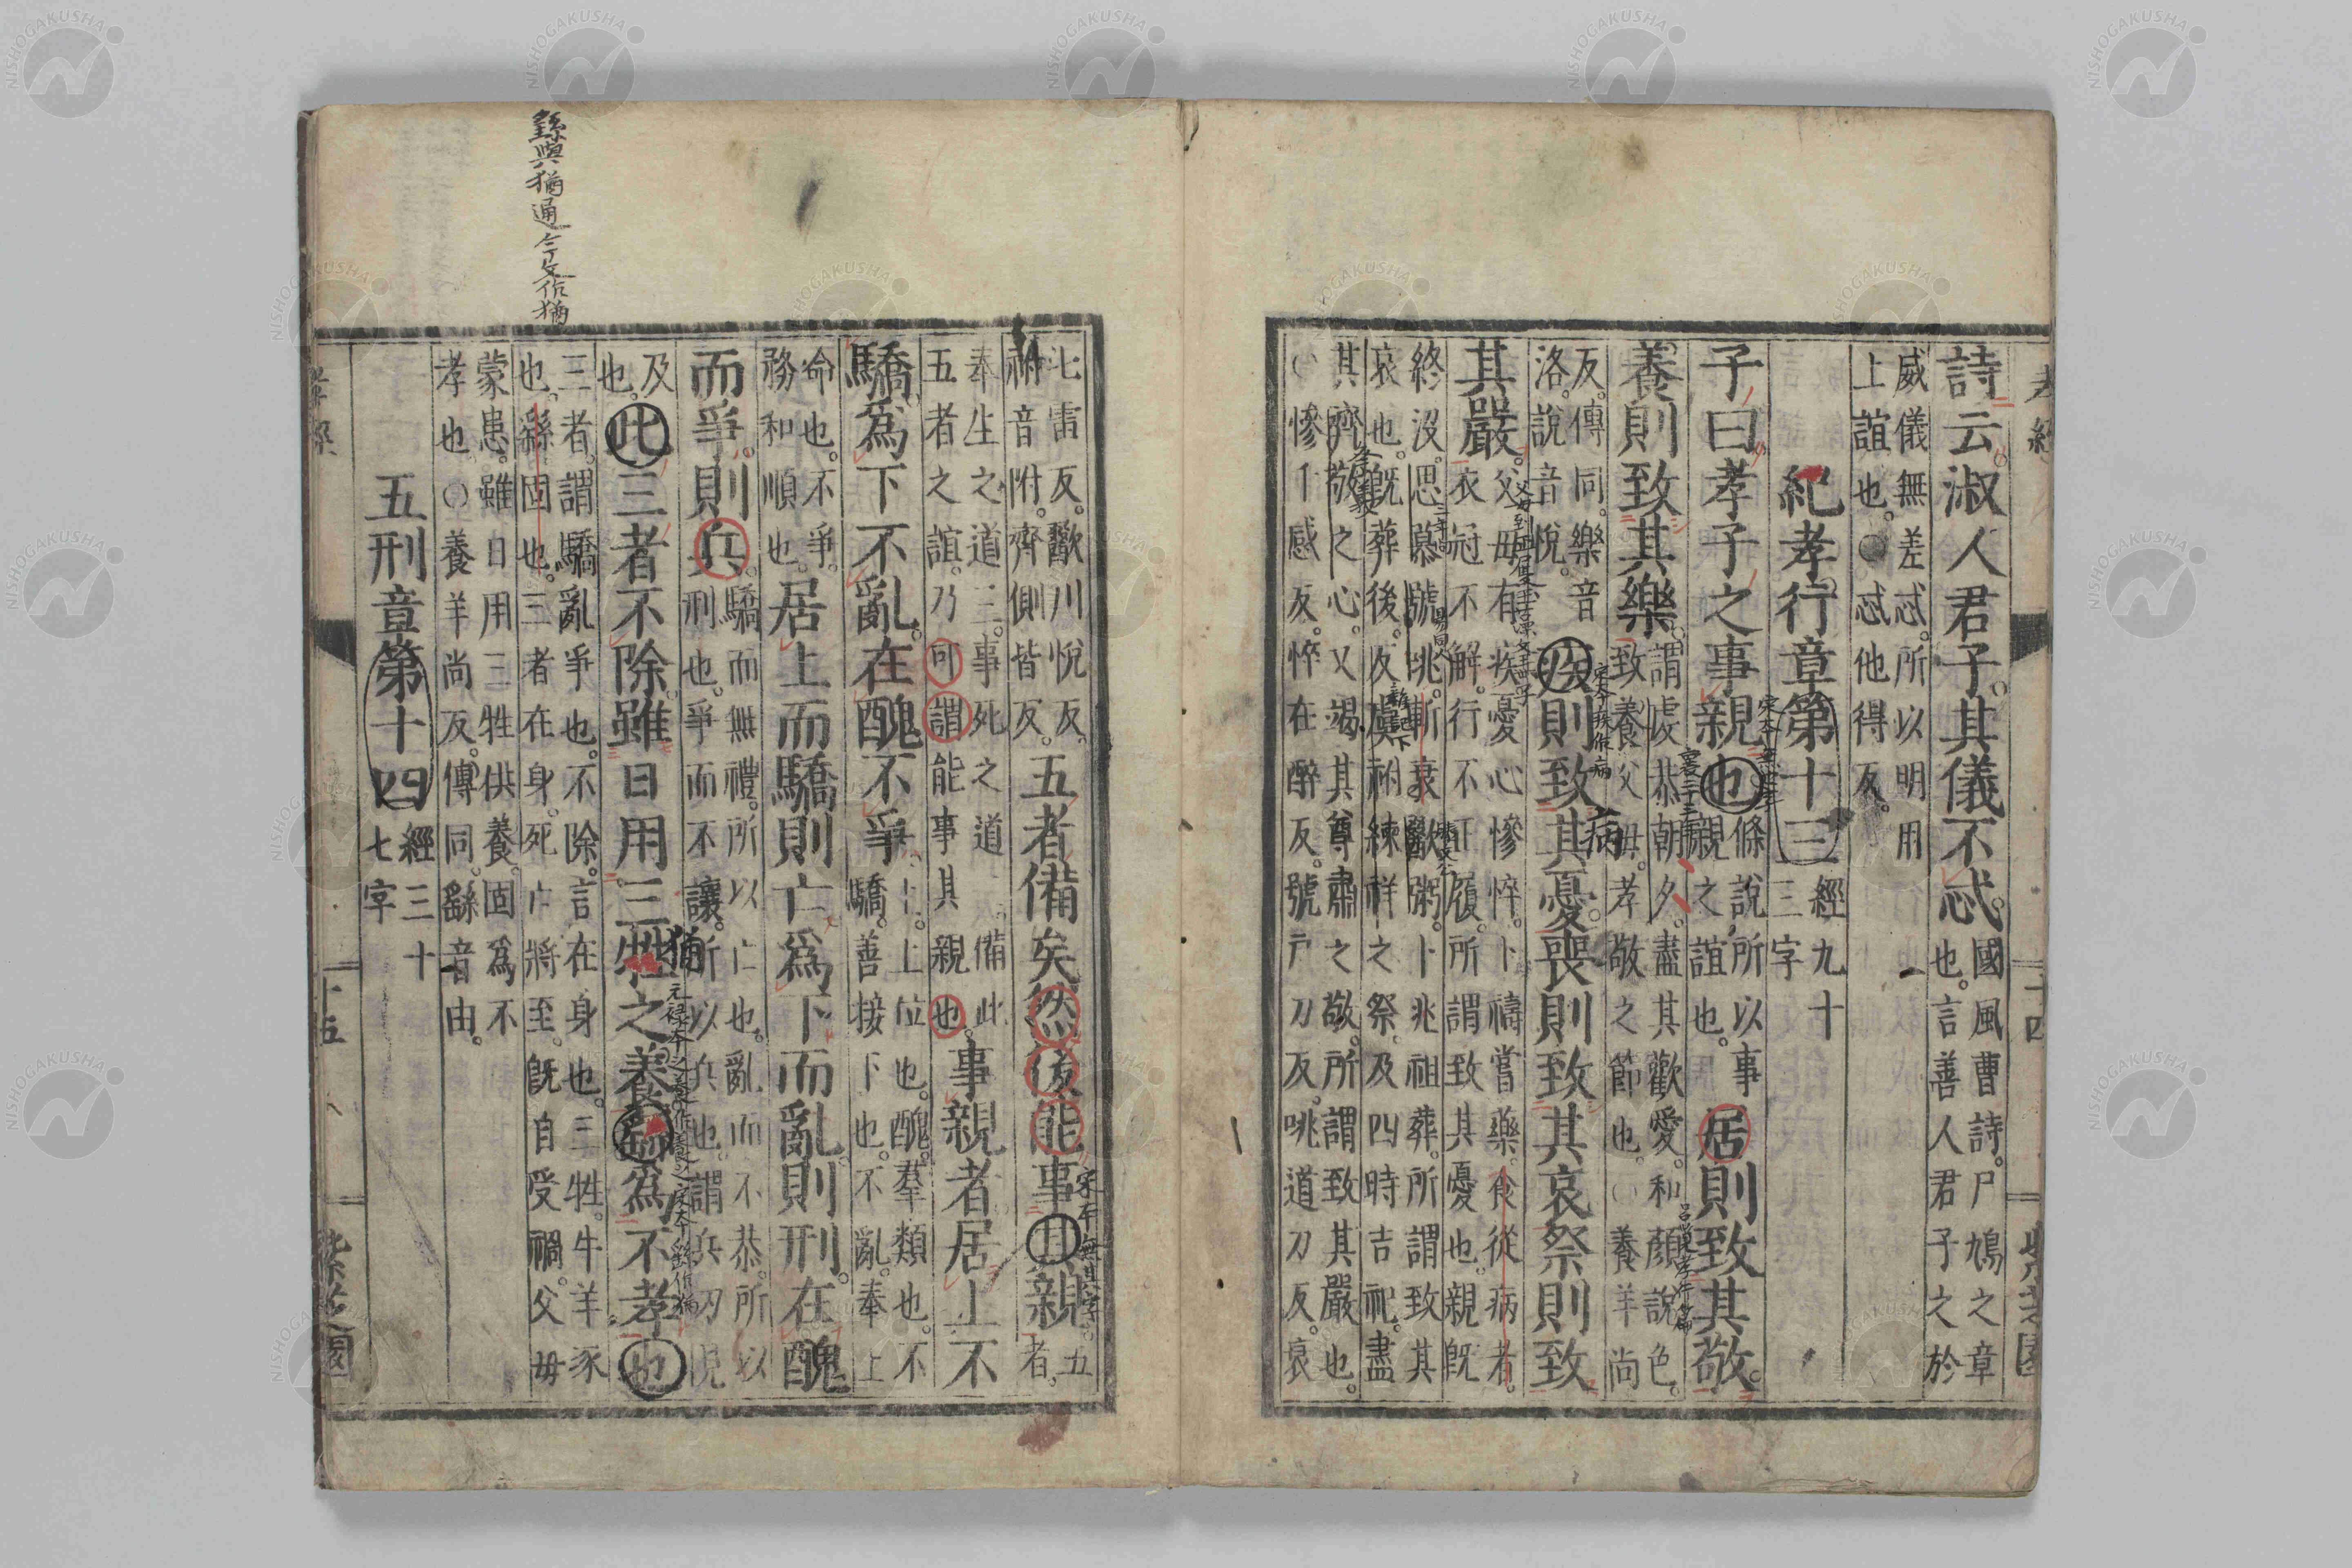 孝經
十四
詩云淑人君子。其儀不忒。
國風曹詩。尸鳩之章
也。言善人君子之於
威儀無差忒。所以明用
上誼也。○忒他得反。
紀孝行章第十三
經九十
三字
子曰孝子之事親也
條說所以事
親之誼也。
居則致其敬。
養則致其樂。
謂虔恭朝夕。盡其歡愛。和顏說色。
致養父母。孝敬之節也。○養羊尚
反。傳同。樂音
洛。說音悅。
疾則致其憂。喪則致其哀祭則致
病
其嚴。
父母有疾。憂心慘悴。卜禱嘗藥。食從病者。
衣冠不解。行不正履。所謂致其憂也。親既
終沒。思慕號咷。斬衰歠粥。卜兆祖葬。所謂致其
哀也。既葬後。反虞祔練祥之祭。及四時吉祀。盡
其齊敬之心。又竭其尊肅之敬。所謂致其嚴也。
○慘千感反。悴在醉反。號戶刀反。咷道刀反。衰
七雷反。歠川悅反。
祔音附。齊側皆反。
五者備矣然後能事其親
五
者。
宋本無其字
奉生之道三。事死之道二。備此
五者之誼。乃可謂能事其親也。
事親者居上不
驕爲下不亂。在醜不爭
上。上位也。醜。羣類也。不
驕。善接下也。不亂。奉上
命也。不爭。
務和順也。
居上而驕則亡爲下而亂則刑。在醜
而爭。則兵。
驕而無禮。所以亡也。亂而不恭。所以
刑也。爭而不讓。所以兵也。謂兵刃見
及
也。
此三者不除。雖日用三牲之養繇爲不孝也
猶
三者。謂驕亂爭也。不除。言在身也。三牲。牛羊豕
也。繇固也。三者在身。死亡將至。既自受禍。父母
繇與猶通今文作猶
蒙患。雖日用三牲供養。固爲不
孝也。○養羊尚反。傳同。繇音由。
五刑章第十四
經三十
七字
孝經
十五
紫芝園